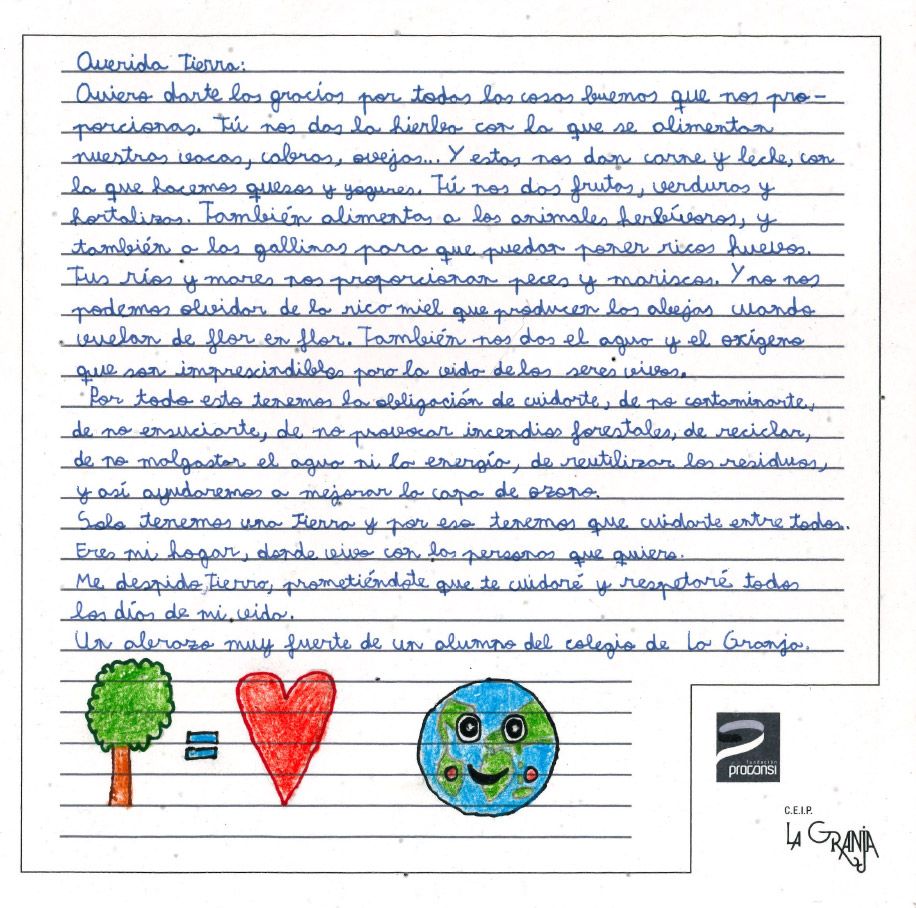 Querida Tierra:
Quiero darte las gracias por todas las cosas buenas que nos pro-
porcionas. Tú nos das la hierba con la que se alimentan
nuestras vacas, cabras, ovejas... Y estas nos dan carne y leche, con
la que hacemos quesos y yogures. Tú nos das frutas, verduras y
hortalizas. También alimentas a los animales herbívoros, y
también a las gallinas para que puedan poner ricos huevos.
Tus ríos y mares nos proporcionan peces y mariscos. Y no nos
podemos olvidar de la rica miel que producen las abejas cuando
vuelan de flor en flor. También nos das el agua y el oxígeno
que son imprescindibles para la vida de los seres vivos.
Por todo esto tenemos la obligación de cuidarte, de no contaminarte,
de no ensuciarte, de no provocar incendios forestales, de reciclar,
de no malgastar el agua ni la energía, de reutilizar los residuos,
y así ayudaremos a mejorar la capa de ozono.
Solo tenemos una Tierra y por eso tenemos que cuidarte entre todos.
Eres mi hogar, donde vivo con las personas que quiero.
Me despido Tierra, prometiéndote que te cuidaré y respetaré todos
los días de mi vida.
Un abrazo muy fuerte de un alumno del colegio de La Granja.
fundación
proconsi
C.E.I.P.
LA GRANJA